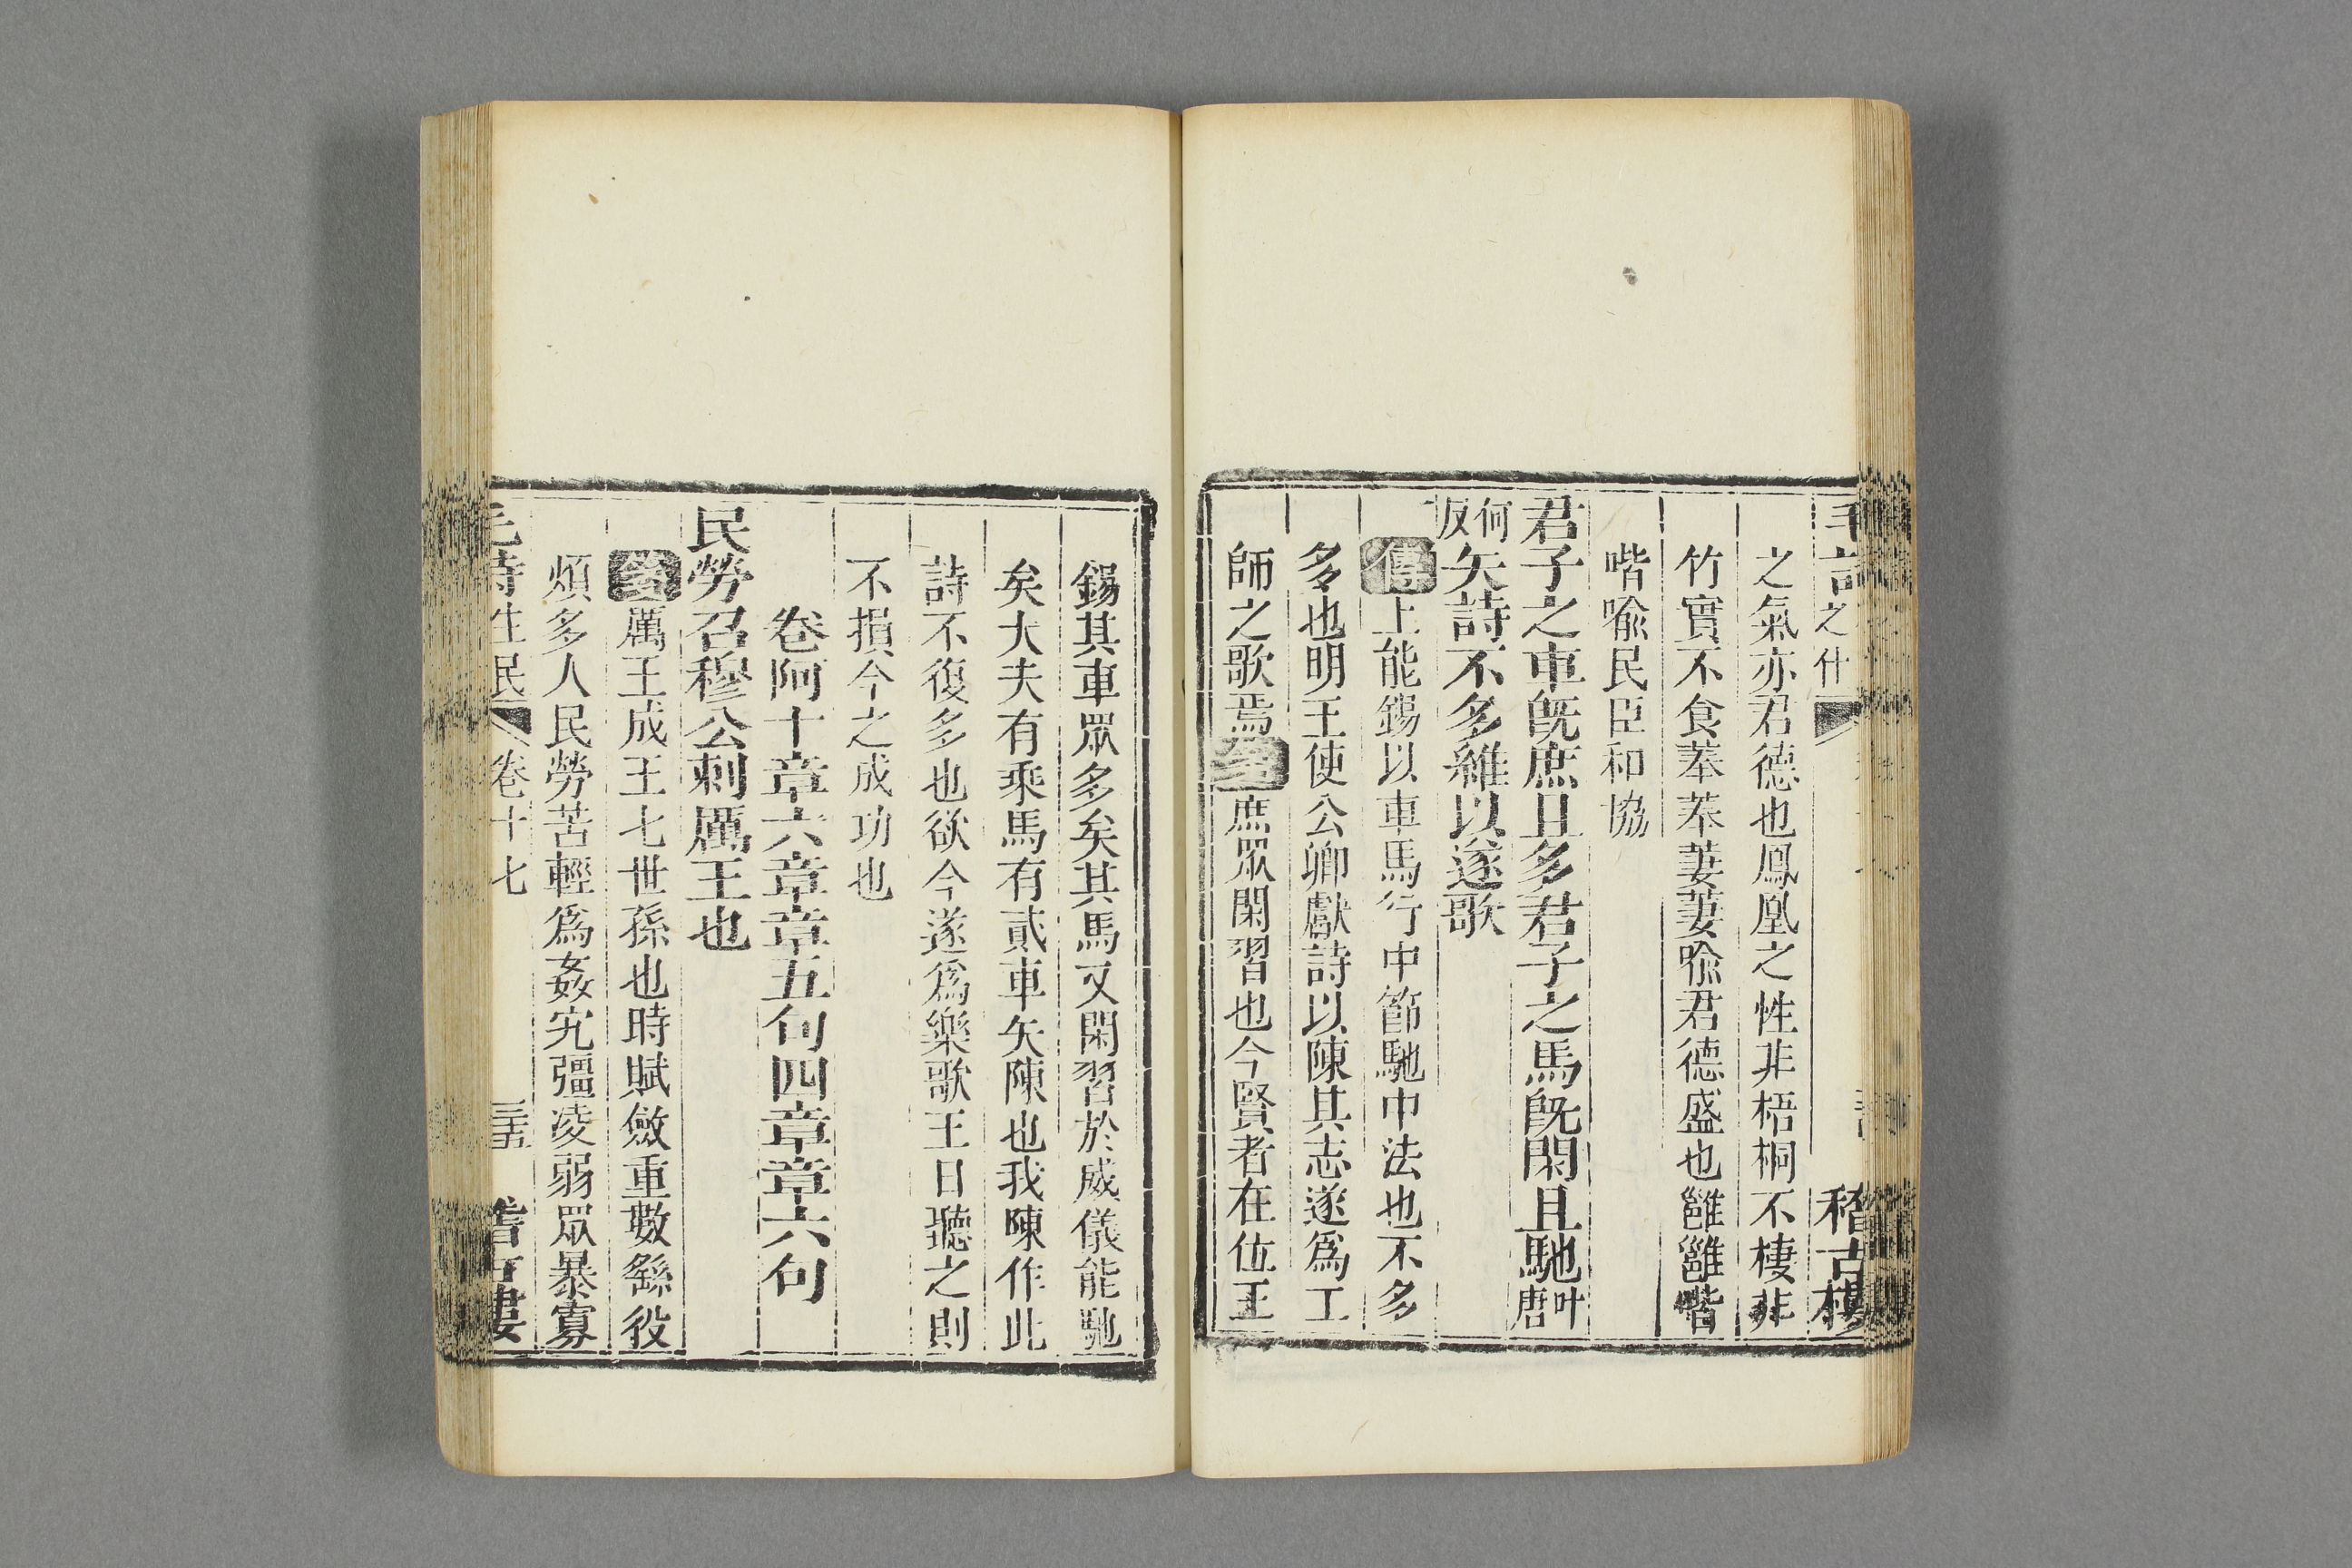 之氣亦君德也鳳凰之性非梧桐不棲非
竹實不食菶菶萋萋喩君德盛也雝雝喈
喈喩民臣和協
君子之車旣庶且多君子之馬旣閑且馳叶唐
何反矢詩不多維以遂歌
傳上能錫以車馬行中節馳中法也不多
多也明王使公卿獻詩以陳其志遂爲工
師之歌焉箋庶眾閑習也今賢者在位王
錫其車眾多矣其馬又閑習於威儀能馳
矣大夫有乘馬有貳車矢陳也我陳作此
詩不復多也欲今遂爲樂歌王日聽之則
不損今之成功也
卷阿十章六章章五句四章章六句
民勞召穆公刺厲王也
箋厲王成王七世孫也時賦斂重數繇役
煩多人民勞苦輕爲姦宄彊凌弱眾暴寡
毛詩生民 卷十七 三五 稽古樓